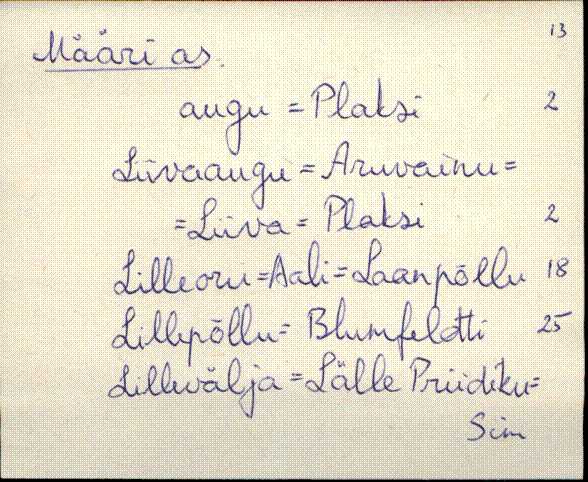 13
Määri as.
augu = Plaksi 2
Liivaaugu = Aruvainu =
= Liiva = Plaksi 2
Lilleoru = Aali = Laanpõllu 18
Lillepõllu = Blumfeldti 25
Lillevälja = Lälle Priidiku =
Sim